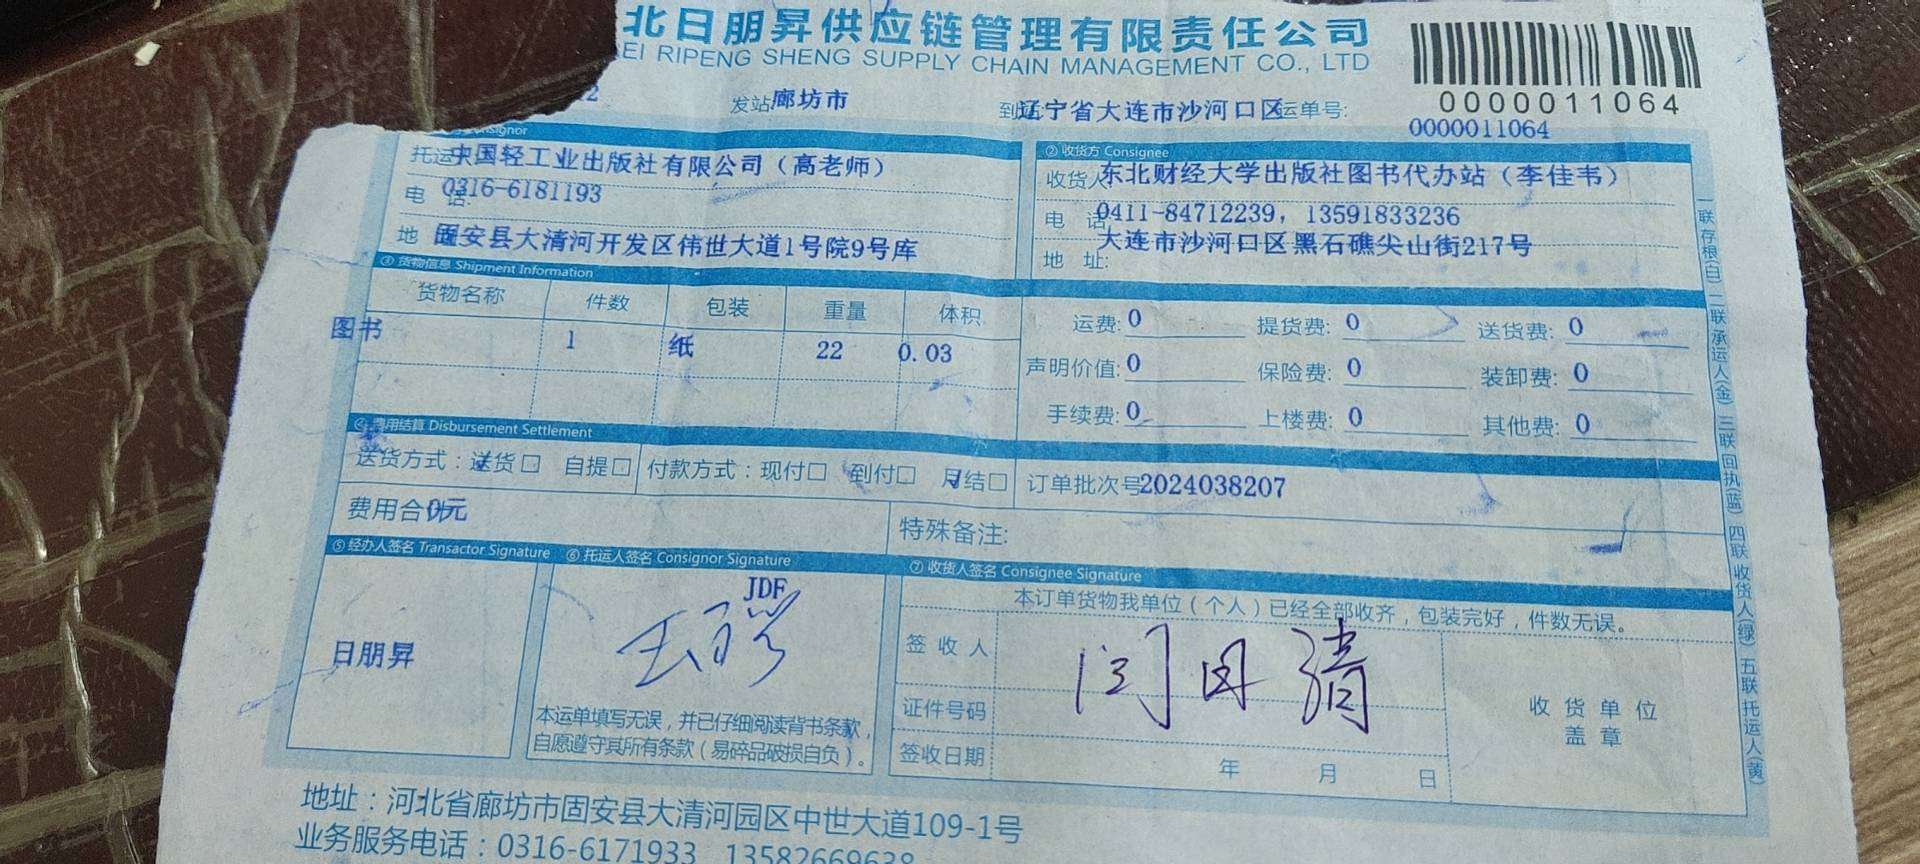 北日朋昇供应链管理有限责任公司
EI RIPENG SHENG SUPPLY CHAIN MANAGEMENT CO., LTD
0000011064
2 发站 廊坊市 到站 辽宁省大连市沙河口区 运单号: 0000011064
Consignor
② 收货方 Consignee
托运 中国轻工业出版社有限公司（高老师）
收货人 东北财经大学出版社图书代办站（李佳韦）
电 话 0316-6181193
电 话 0411-84712239, 13591833236
地 固安县大清河开发区伟世大道1号院9号库
地 址: 大连市沙河口区黑石礁尖山街217号
③ 货物信息 Shipment Information
货物名称 件数 包装 重量 体积
图书 1 纸 22 0.03
运费: 0 提货费: 0 送货费: 0
声明价值: 0 保险费: 0 装卸费: 0
手续费: 0 上楼费: 0 其他费: 0
④ 费用结算 Disbursement Settlement
送货方式：送货□ 自提□ 付款方式：现付□ 到付□ 月结□ 订单批次号 2024038207
费用合计 0元 特殊备注:
⑤ 经办人签名 Transactor Signature ⑥ 托运人签名 Consignor Signature ⑦ 收货人签名 Consignee Signature
日朋昇
JDF
本运单填写无误，并已仔细阅读背书条款，
自愿遵守其所有条款（易碎品破损自负）。
本订单货物我单位（个人）已经全部收齐，包装完好，件数无误。
签 收 人
证件号码
签收日期 年 月 日
收 货 单 位
盖 章
一联存根(白) 二联承运人(金) 三联回执(蓝) 四联收货人(绿) 五联托运人(黄)
地址：河北省廊坊市固安县大清河园区中世大道109-1号
业务服务电话：0316-6171933 13582669638